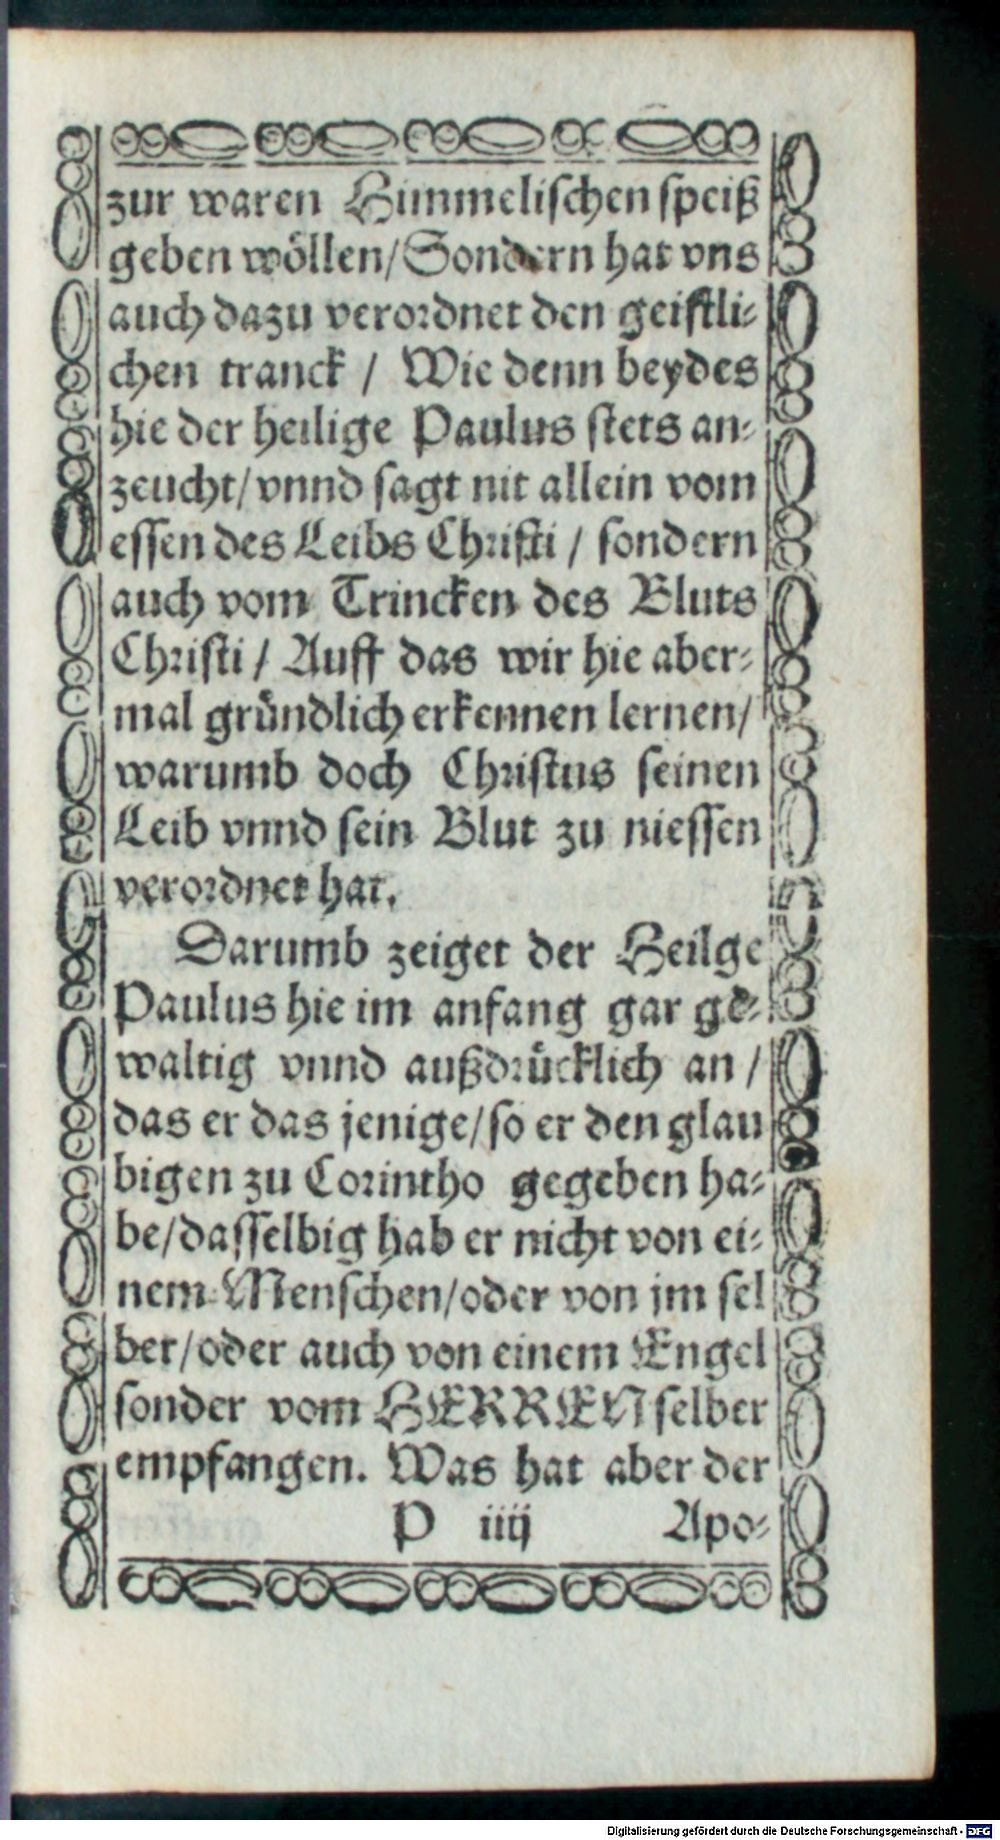 zur waren Himmelischen speiß
geben wöllen/Sondern hat vns
auch dazu verordnet den geistli-
chen tranck / Wie denn beydes
hie der heilige Paulus stets an-
zeucht/vnnd sagt nit allein vom
essen des Leibs Christi / sondern
auch vom Trincken des Bluts
Christi / Auff das wir hie aber-
mal gründlich erkennen lernen/
warumb doch Christus seinen
Leib vnnd sein Blut zu niessen
verordnet hat.
Darumb zeiget der Heilge
Paulus hie im anfang gar ge-
waltig vnnd außdrücklich an /
das er das jenige/so er den glau
bigen zu Corintho gegeben ha-
be/dasselbig hab er nicht von ei-
nem Menschen/oder von jm sel
ber/oder auch von einem Engel
sonder vom HERREN selber
empfangen. Was hat aber der
P iiij Apo-
Digitalisierung gefördert durch die Deutsche Forschungsgemeinschaft - DFG